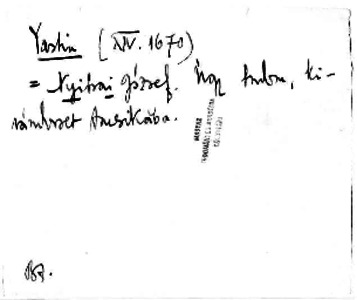 Yartin (XIV. 1670)
= Nyitrai József. Úgy tudom, ki-
vándorolt Amerikába.